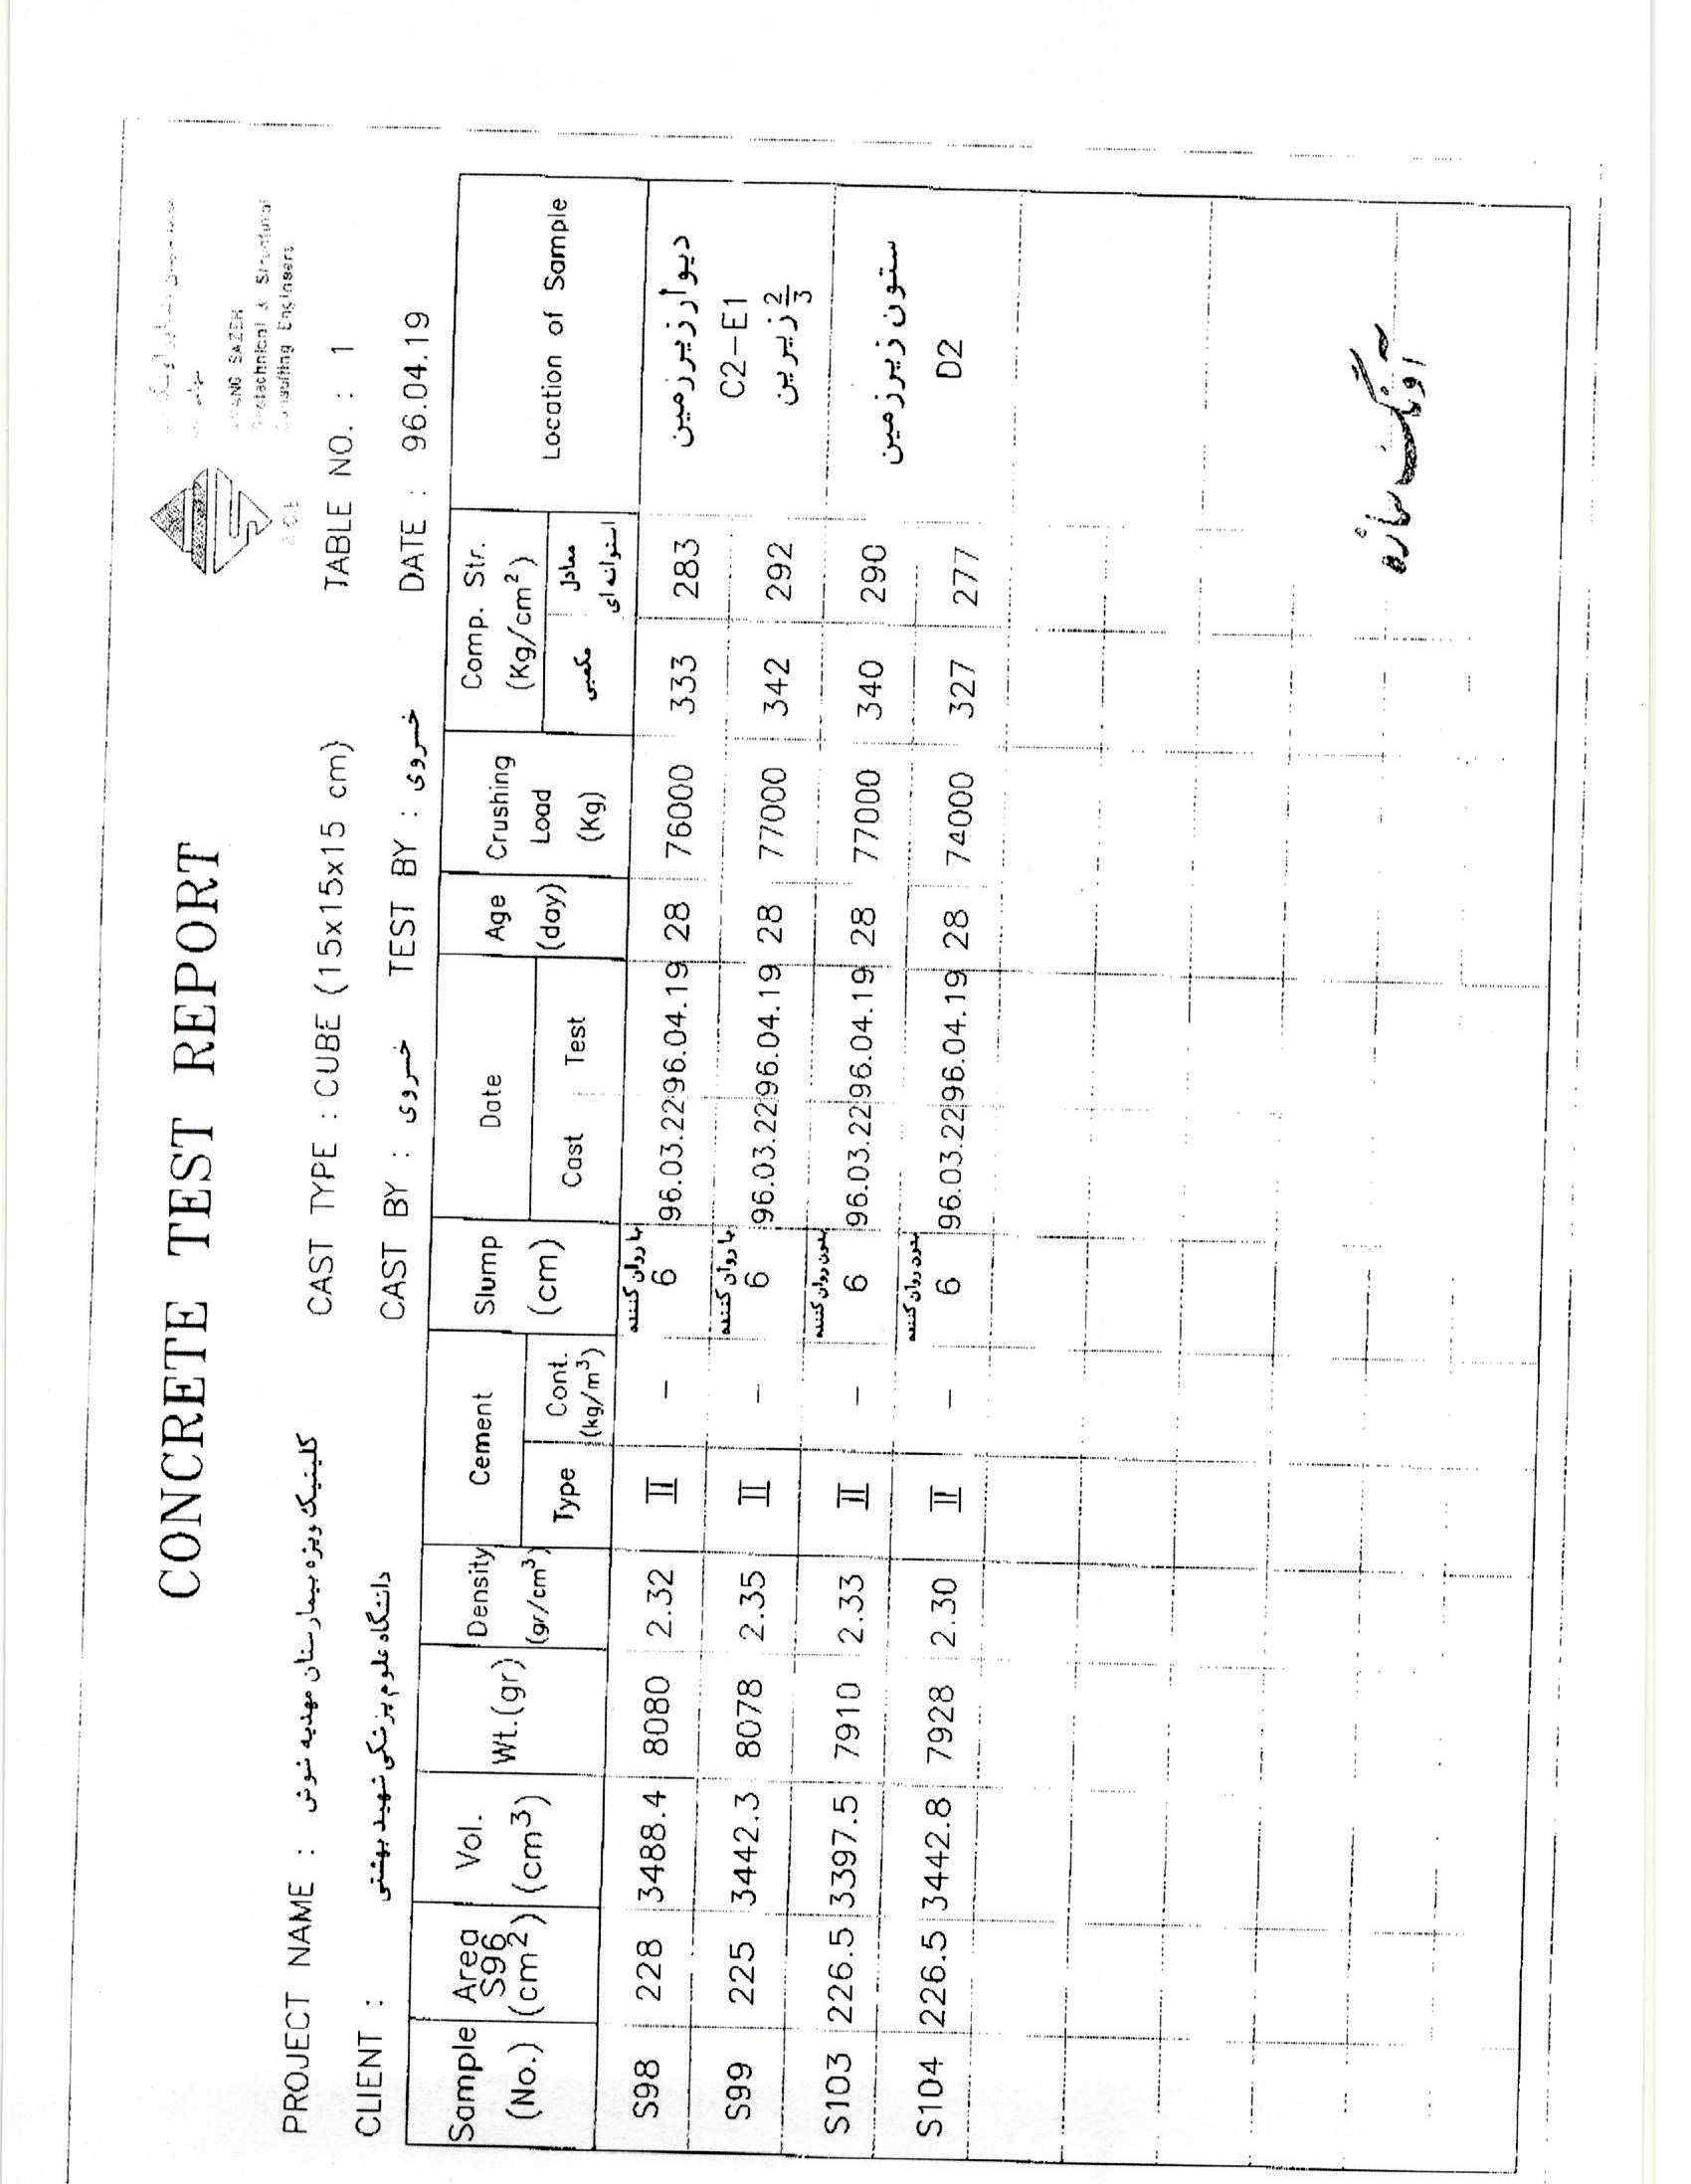 CONCRETE TEST REPORT
ANG SAZEH
Geotechnical & Structural
Consulting Engineers
PROJECT NAME : کلینیک ویژه بیمارستان مهدیه شوش
CAST TYPE : CUBE (15x15x15 cm)
TABLE NO. : 1
CLIENT : دانشگاه علوم پزشکی شهید بهشتی
CAST BY : خسروی
TEST BY : خسروی
DATE : 96.04.19
Sample (No.) Area S96 (cm²) Vol. (cm³) Wt.(gr) Density (gr/cm³) Cement Slump (cm) Date Age (day) Crushing Load (Kg) Comp. Str. (Kg/cm²) Location of Sample
Type Cont. (kg/m³) Cast Test مکعبی معادل استوانه ای
S98 228 3488.4 8080 2.32 II - با روان کننده 6 96.03.22 96.04.19 28 76000 333 283 دیوار زیرزمین
S99 225 3442.3 8078 2.35 II - با روان کننده 6 96.03.22 96.04.19 28 77000 342 292 C2-E1 2/3 زیرین
S103 226.5 3397.5 7910 2.33 II - بدون روان کننده 6 96.03.22 96.04.19 28 77000 340 290 ستون زیرزمین
S104 226.5 3442.8 7928 2.30 II - بدون روان کننده 6 96.03.22 96.04.19 28 74000 327 277 D2
آونگ سازه